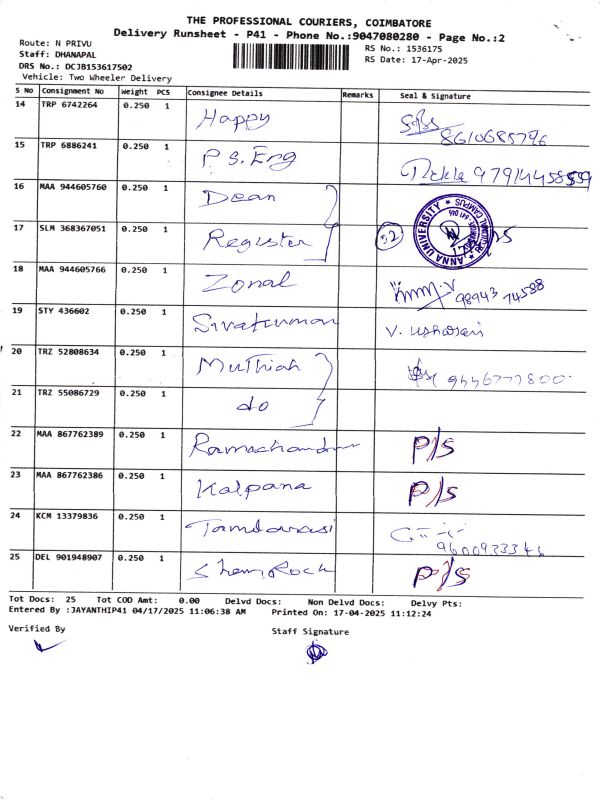 THE PROFESSIONAL COURIERS, COIMBATORE
Delivery Runsheet - P41 - Phone No.:9047080280 - Page No.:2
Route: N PRIVU
Staff: DHANAPAL
DRS No.: DCJB153617502
Vehicle: Two Wheeler Delivery
RS No.: 1536175
RS Date: 17-Apr-2025
S No Consignment No Weight PCS Consignee Details Remarks Seal & Signature
14 TRP 6742264 0.250 1 Happy 8610685796
15 TRP 6886241 0.250 1 P S. Eng 97914458559
16 MAA 944605760 0.250 1 Dean
17 SLM 368367051 0.250 1 Register 32 ANNA UNIVERSITY
18 MAA 944605766 0.250 1 Zonal 98943 74588
19 STY 436602 0.250 1 Sivakumar V. Usharani
20 TRZ 52808634 0.250 1 Muthiah 9446777800
21 TRZ 55086729 0.250 1 do
22 MAA 867762389 0.250 1 Ramachandran P/S
23 MAA 867762386 0.250 1 Kalpana P/S
24 KCM 13379836 0.250 1 Tamilarasi
25 DEL 901948907 0.250 1 ShamRock P/S
Tot Docs: 25 Tot COD Amt: 0.00 Delvd Docs: Non Delvd Docs: Delvy Pts:
Entered By :JAYANTHIP41 04/17/2025 11:06:38 AM Printed On: 17-04-2025 11:12:24
Verified By
Staff Signature